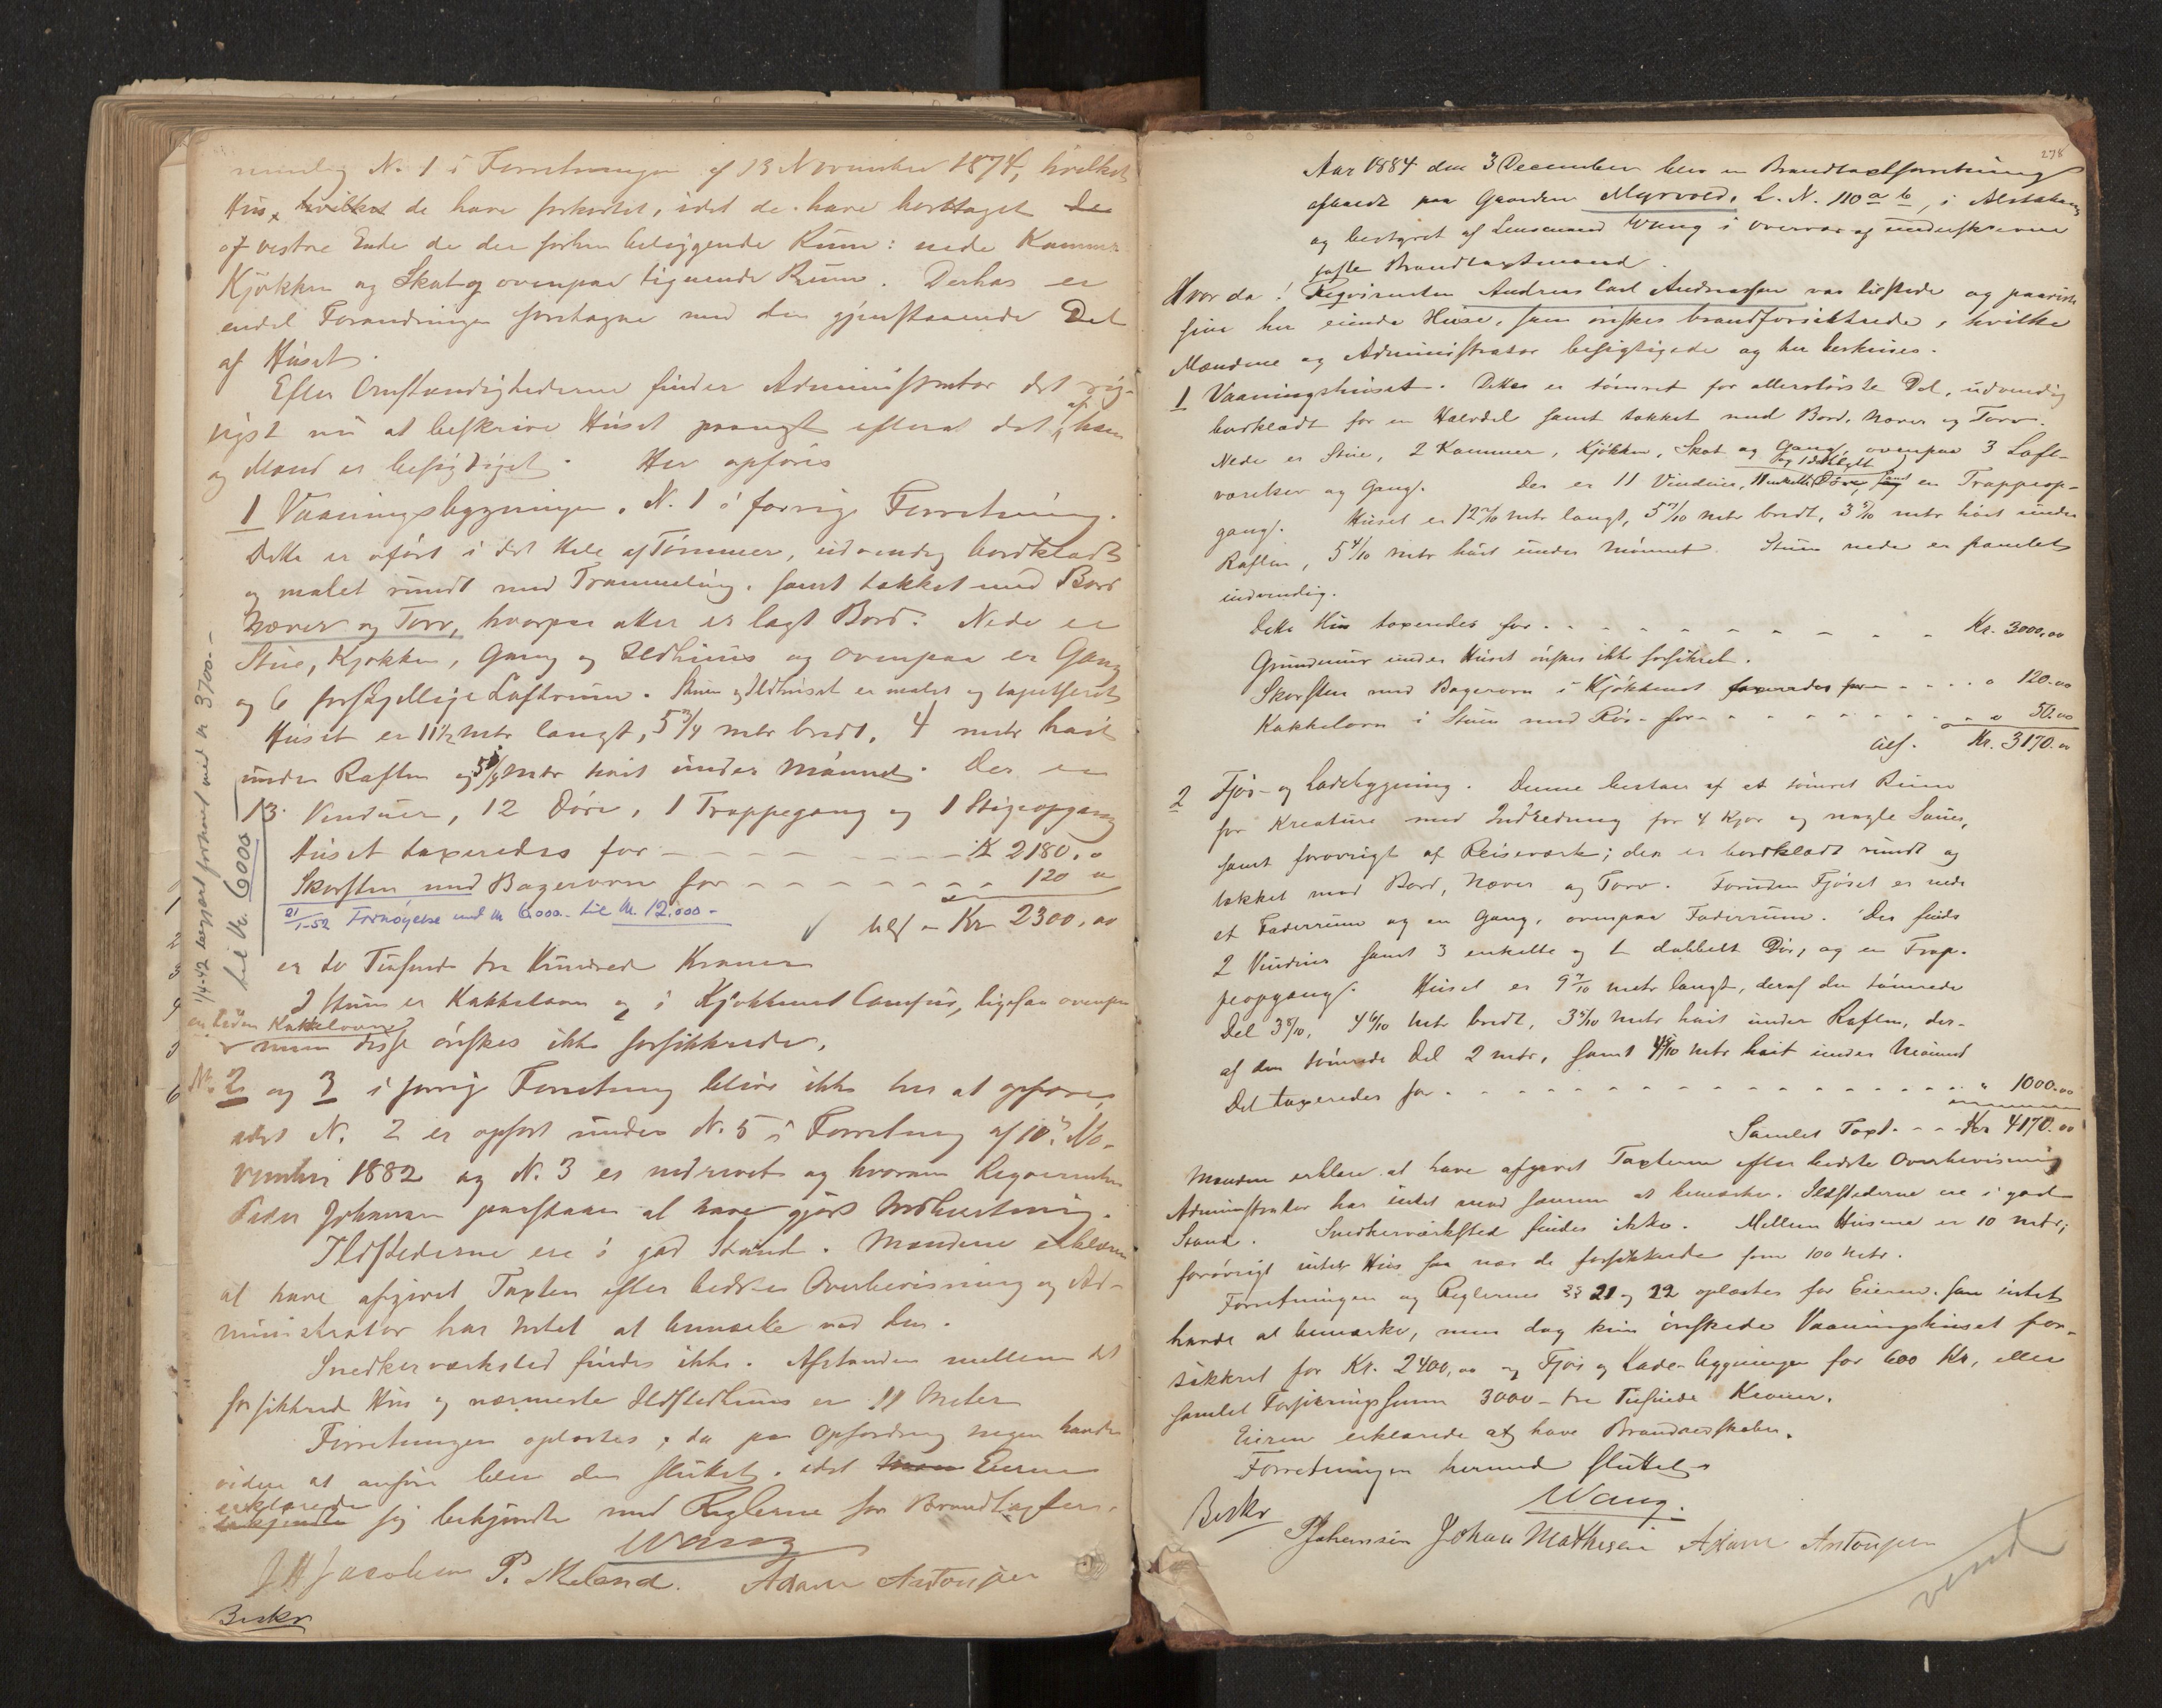 nemlig N. 1 i Forretningen af 13 November 1874, hvilket
Hus, hvilket de have forkortet, idet de have borttaget de
af vestre Ende de der forhen beliggende Rum: nede Kammer
Kjøkken og Skot og ovenpaa lignende Rum. Derhos er
endel Forandringer foretagne med den gjenstaaende Del
af Huset.
Efter Omstændighederne finder Administrator det rig-
tigst nu at beskrive Huset paanyt efterat det af ham
og Mænd er besigtiget. Her opføres
1 Vaaningsbygningen, N. 1 i forrige Forretning.
Dette er opført i det Hele af Tømmer, udvendig bordklædt
og malet rundt med Trammeling, samt tækket med Bord
Næver og Torv, hvorpaa atter er lagt Bord. Nede er
Stue, Kjøkken, Gang og Ildhuus og ovenpaa er Gang
og 6 forskjellige Loftrum. Stuen og Ildhuset er malet og tapetseret
Huset er 11½ mtr langt, 5 3/4 mtr bredt, 4 mtr høit
under Raften og 5 mtr høit under Mønnet. Der er
13 Vinduer, 12 Døre, 1 Trappegang og 1 Stigeopgang
Huset taxeredes for - - - - - - K 2180.0
Skorsten med Bagerovn for - - - - - - 120 "
21/1-52 Forhøyelse med kr 6000.- til kr. 12.000-
tils - Kr 2300,00
er to Tusinde tre Hundrede Kroner
I Stuen er Kakkelovn og i Kjøkkenet Comfur, ligesaa ovenpaa
en liden Kakkelovn
men disse ønskes ikke forsikkrede.
No 2 og 3 i forrige Forretning blive ikke her at opføre,
idet N. 2 er opført under N. 5 i Forretning af 10de No-
vember 1882 og N. 3 er nedrevet og hvorom Reqvirenten
Peder Johansen paastaar at have gjort Indberetning.
Ildstederne ere i god Stand. Mændene erklærer
at have afgivet Taxten efter bedste Overbevisning og Ad-
ministrator har Intet at bemærke ved den.
Snedkerværksted findes ikke. Afstanden mellem det
forsikkrede Hus og nærmeste Ildstedhuus er 11 Meter
Forretningen oplæstes, da paa Opfordring ingen havde
videre at anføre blev den sluttet, idet Eieren
erklærede
sig bekjendt med Reglerne for Brandtaxter.
Wang
J H Jacobsen P. Meland. Adam Antonsen
Beskr
1/4-42 begjært forhøiet med kr 3700.-
til kr. 6000
238
Aar 1884 den 3 December blev en Brandtaxtforretning
afholdt paa Gaarden Myrvold, L. N. 110 a b, i Alstahaug
og bestyret af Lensmand Wang i Overvær af underskrevne
faste Brandtaxtmænd.
Hvor da: Reqvirenten Andreas Carl Andreassen var tilstede og paaviste
sine her eiende Huse, som ønskes brandforsikkrede, hvilke
Mændene og Administrator besigtigede og her beskrives.
1 Vaaningshuset. Dette er tømret for allerstørste Del, udvendig
bordklædt for en Halvdel samt tækket med Bord, Næver og Torv.
Nede er Stue, 2 Kammer, Kjøkken, Skot og Gang, ovenpaa 3 Loft-
værelser og Gang. Der er 11 Vinduer, 11 enkelte og 1 dobbelt Døre, samt en Trappeop-
gang. Huset er 12 7/10 mtr langt, 5 7/10 mtr bredt, 3 5/10 mtr høit under
Raften, 5 4/10 mtr høit under Mønnet. Stuen nede er panelet
indvendig.
Dette Hus taxeredes for - - - - - - Kr. 3000,00
Grundmur under Huset ønskes ikke forsikret.
Skorsten med Bagerovn i Kjøkkenet taxeredes for - - - - " 120.00
Kakkelovn i Stuen med Rør - for - - - - - - " 50.00
tils. Kr. 3170.00
2 Fjøs- og Ladebygning. Denne bestaar af et tømret Rum
for Kreature med Indredning for 4 Kjør og nogle Sauer,
samt forøvrigt af Reisværk; den er bordklædt rundt og
tækket med Bord, Næver og Torv. Foruden Fjøset er nede
et Foderrum og en Gang, ovenpaa Foderrum. Der findes
2 Vinduer samt 3 enkelte og 1 dobbelt Dør, og en Trap-
peopgang. Huset er 9 7/10 mtr langt, deraf den tømrede
Del 3 8/10, 4 6/10 mtr bredt, 3 5/10 mtr høit under Raften, der-
af den tømrede Del 2 mtr, samt 4 8/10 mtr høit under Mønnet
Det taxeredes for - - - - - - " 1000.00
Samlet Taxt - - - Kr 4170.00
Mændene erklærer at have afgivet Taxterne efter bedste Overbevisning
Administrator har intet mod samme at bemærke. Ildstederne ere i god
Stand. Snedkerværksted findes ikke. Mellem Husene er 10 mtr;
forøvrigt intet Hus saa nær de forsikkrede som 100 mtr.
Forretningen og Reglernes §§ 21 og 22 oplæstes for Eieren, som intet
havde at bemærke, men dog kun ønskede Vaaningshuset for-
sikkret for Kr. 2400,00 og Fjøs og Lade-bygningen for 600 Kr, eller
samlet Forsikringssum 3000 - tre Tusinde Kroner.
Eieren erklærede at have Brandredskaber.
Forretningen hermed sluttet
Wang.
Beskr
PJohansen Johan Mathesen Adam Antonsen
vend